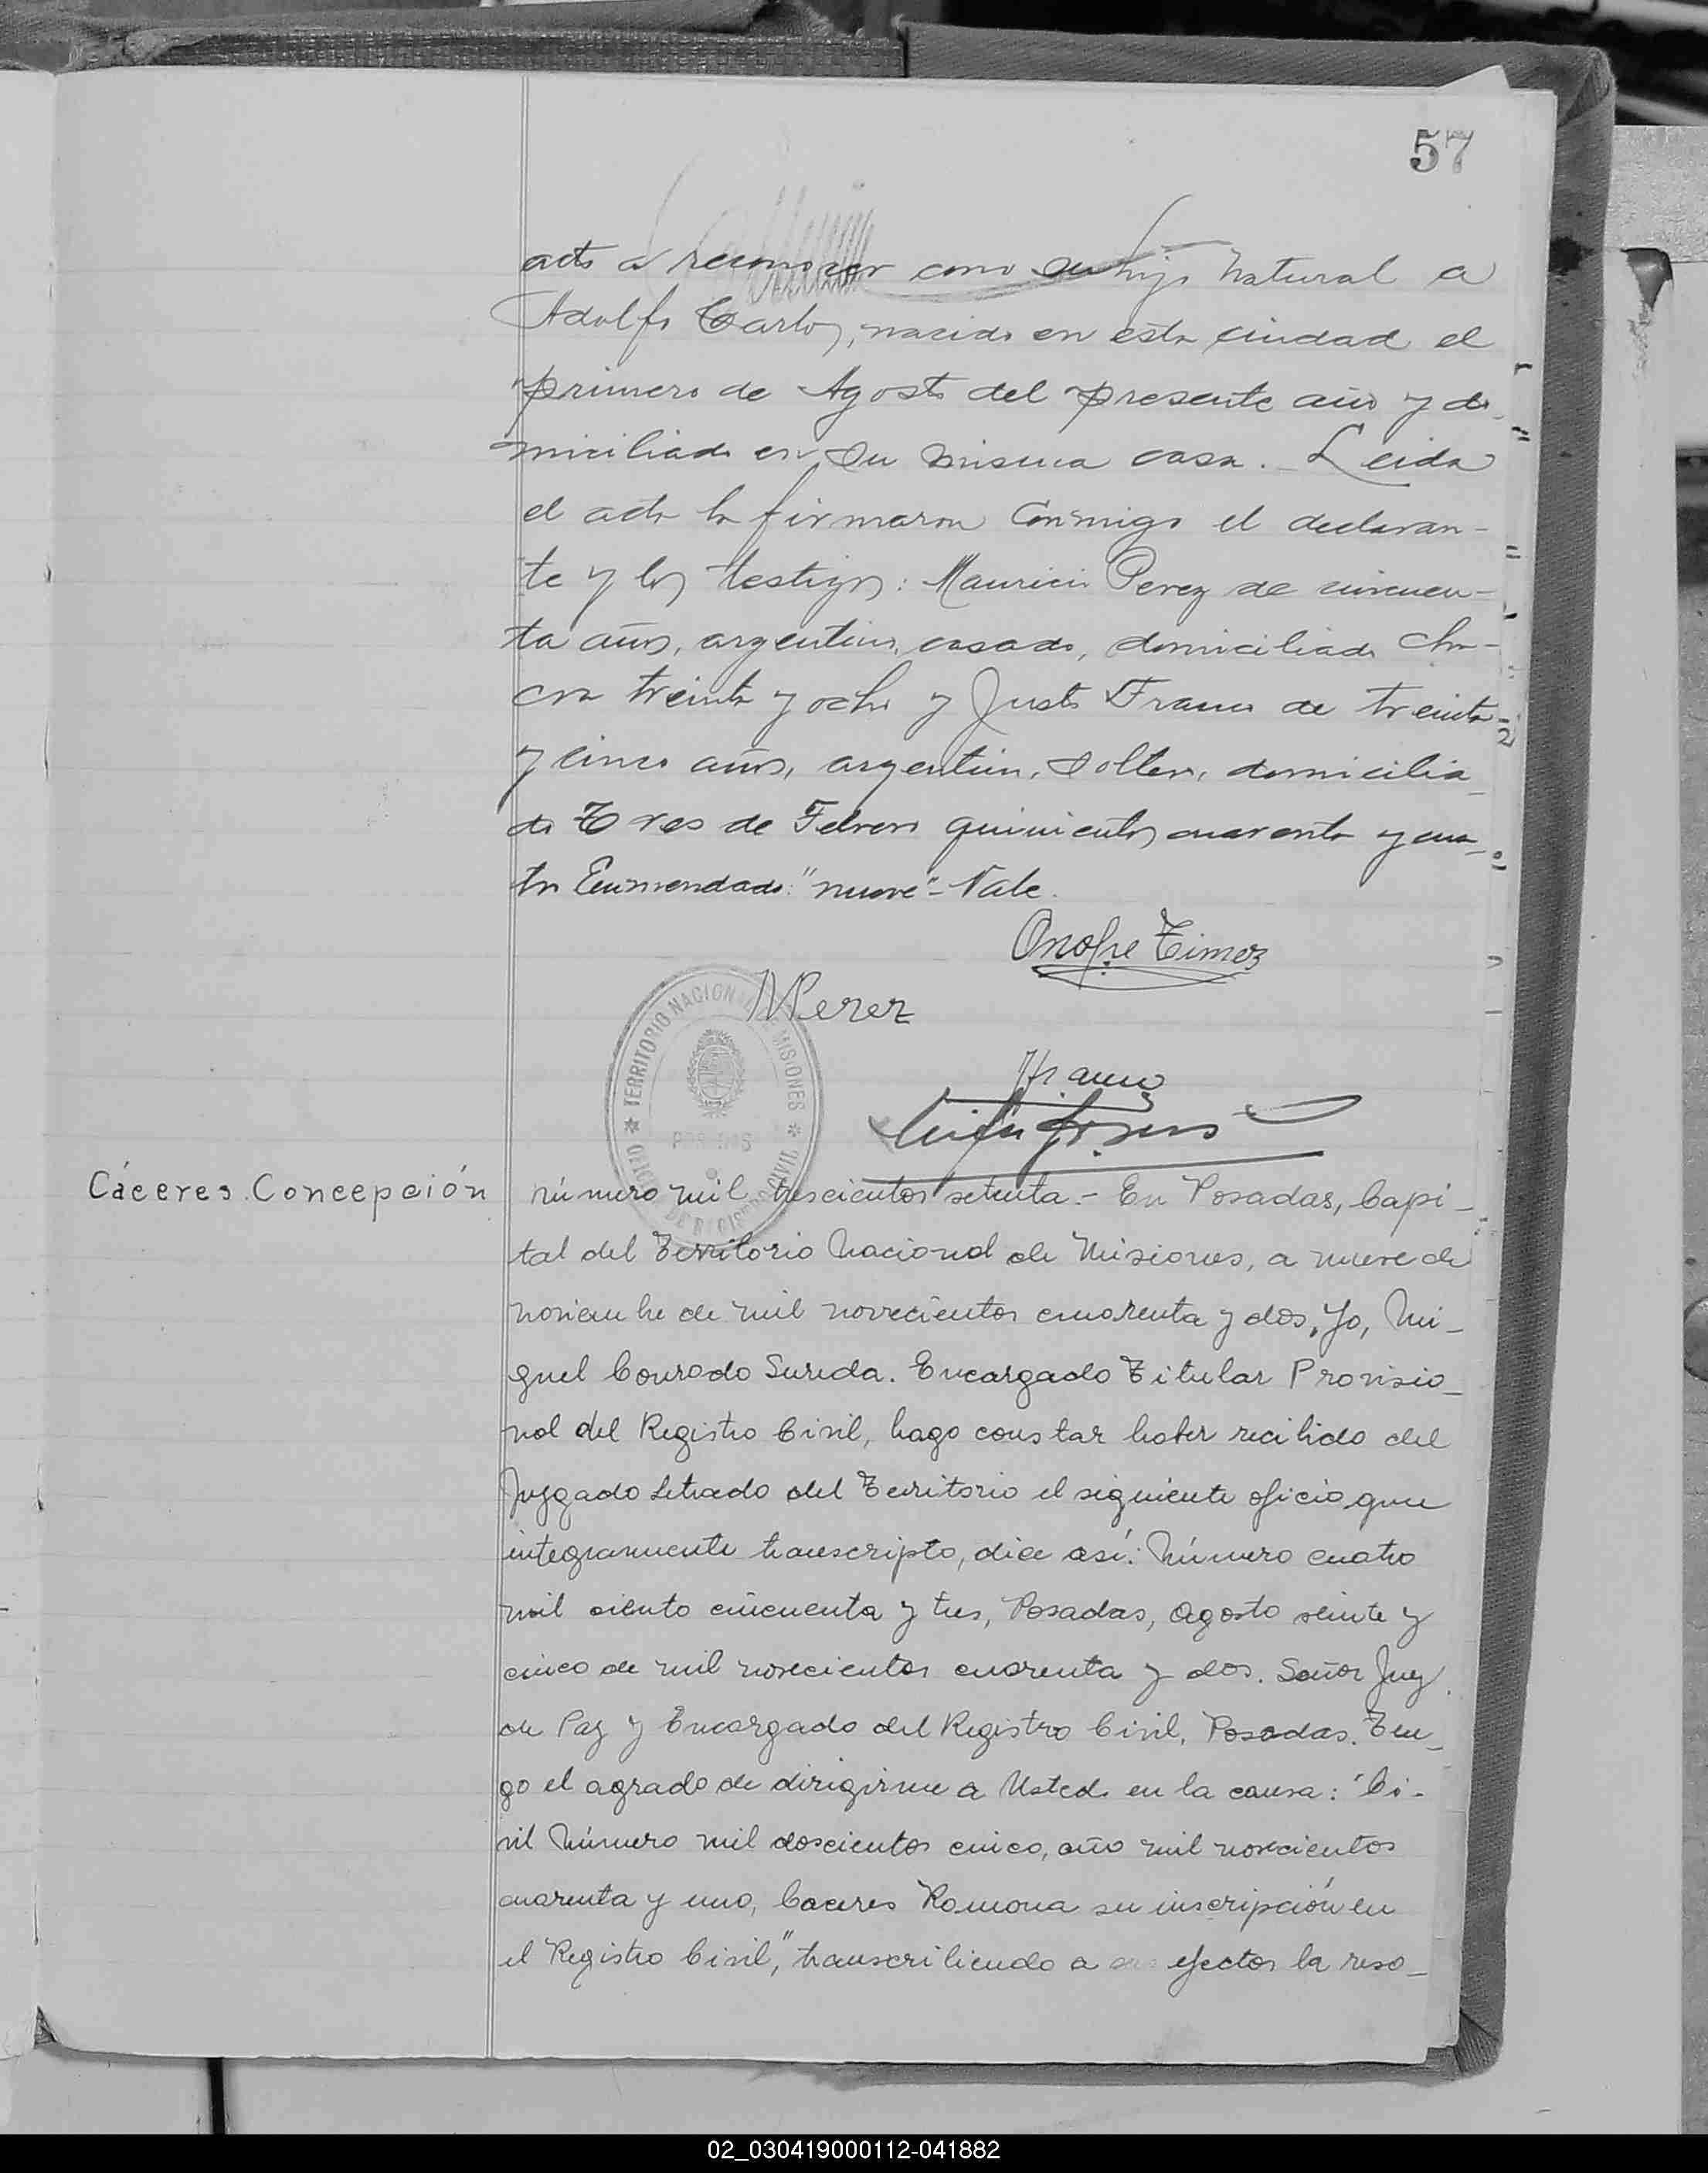 57
acto a reconocer como su hijo natural a
Adolfo Carlos, nacido en esta ciudad el
primero de Agosto del presente año y do-
miciliado en su misma casa. Leida
el acta la firmaron conmigo el declaran-
te y los testigos: Mauricio Perez de cincuen-
ta años, argentino, casado, domiciliado Cha-
cra treinta y ocho y Justo Franco de treinta
y cinco años, argentino, soltero, domicilia-
do Tres de Febrero quinientos cuarenta y cua-
tro Enmendado: "nueve" - Vale.
Onofre Timez
MPerez
TERRITORIO NACIONAL DE MISIONES
POSADAS
OFICINA DE REGISTRO CIVIL
Cáceres Concepción
Número mil trescientos setenta.- En Posadas, Capi-
tal del Territorio Nacional de Misiones, a nueve de
noviembre de mil novecientos cuarenta y dos, Yo, Mi-
guel Conrado Sureda. Encargado Titular Provisio-
nal del Registro Civil, hago constar haber recibido del
Juzgado Letrado del Territorio el siguiente oficio que
integramente transcripto, dice así: Número cuatro
mil ciento cincuenta y tres, Posadas, Agosto veinte y
cinco de mil novecientos cuarenta y dos. Señor Juez
de Paz y Encargado del Registro Civil, Posadas. Ten-
go el agrado de dirigirme a Usted en la causa: "Ci-
vil Número mil doscientos cinco, año mil novecientos
cuarenta y uno, Caceres Ramona su inscripción en
el Registro Civil," transcribiendo a sus efectos la reso-
02_030419000112-041882